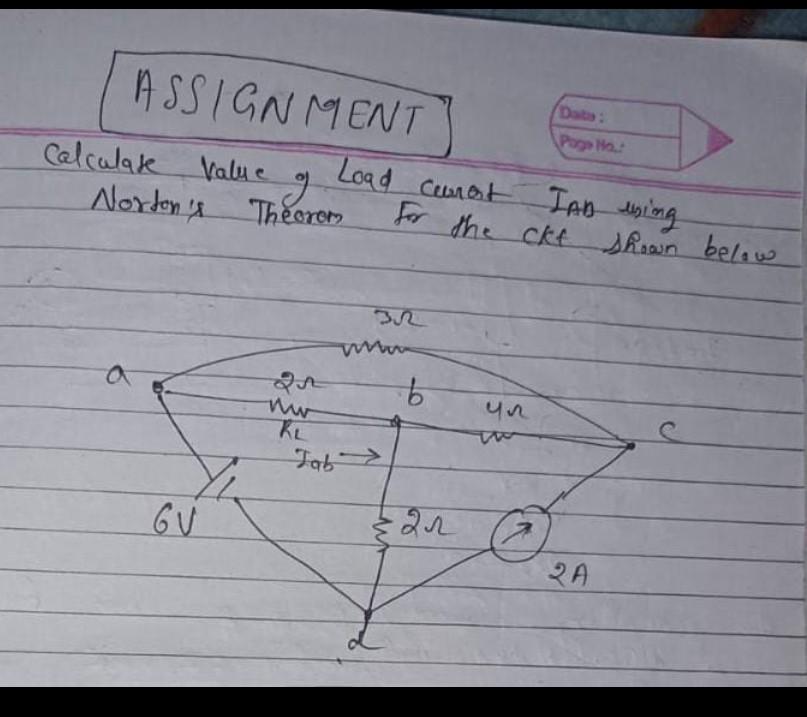 ASSIGNMENT
Date:
Page No.:
Calculate Value of Load current IAB using
Norton's Theorem For the ckt shown below
3Ω
a
2Ω
b
4Ω
c
RL
Iab →
6V
2Ω
2A
d